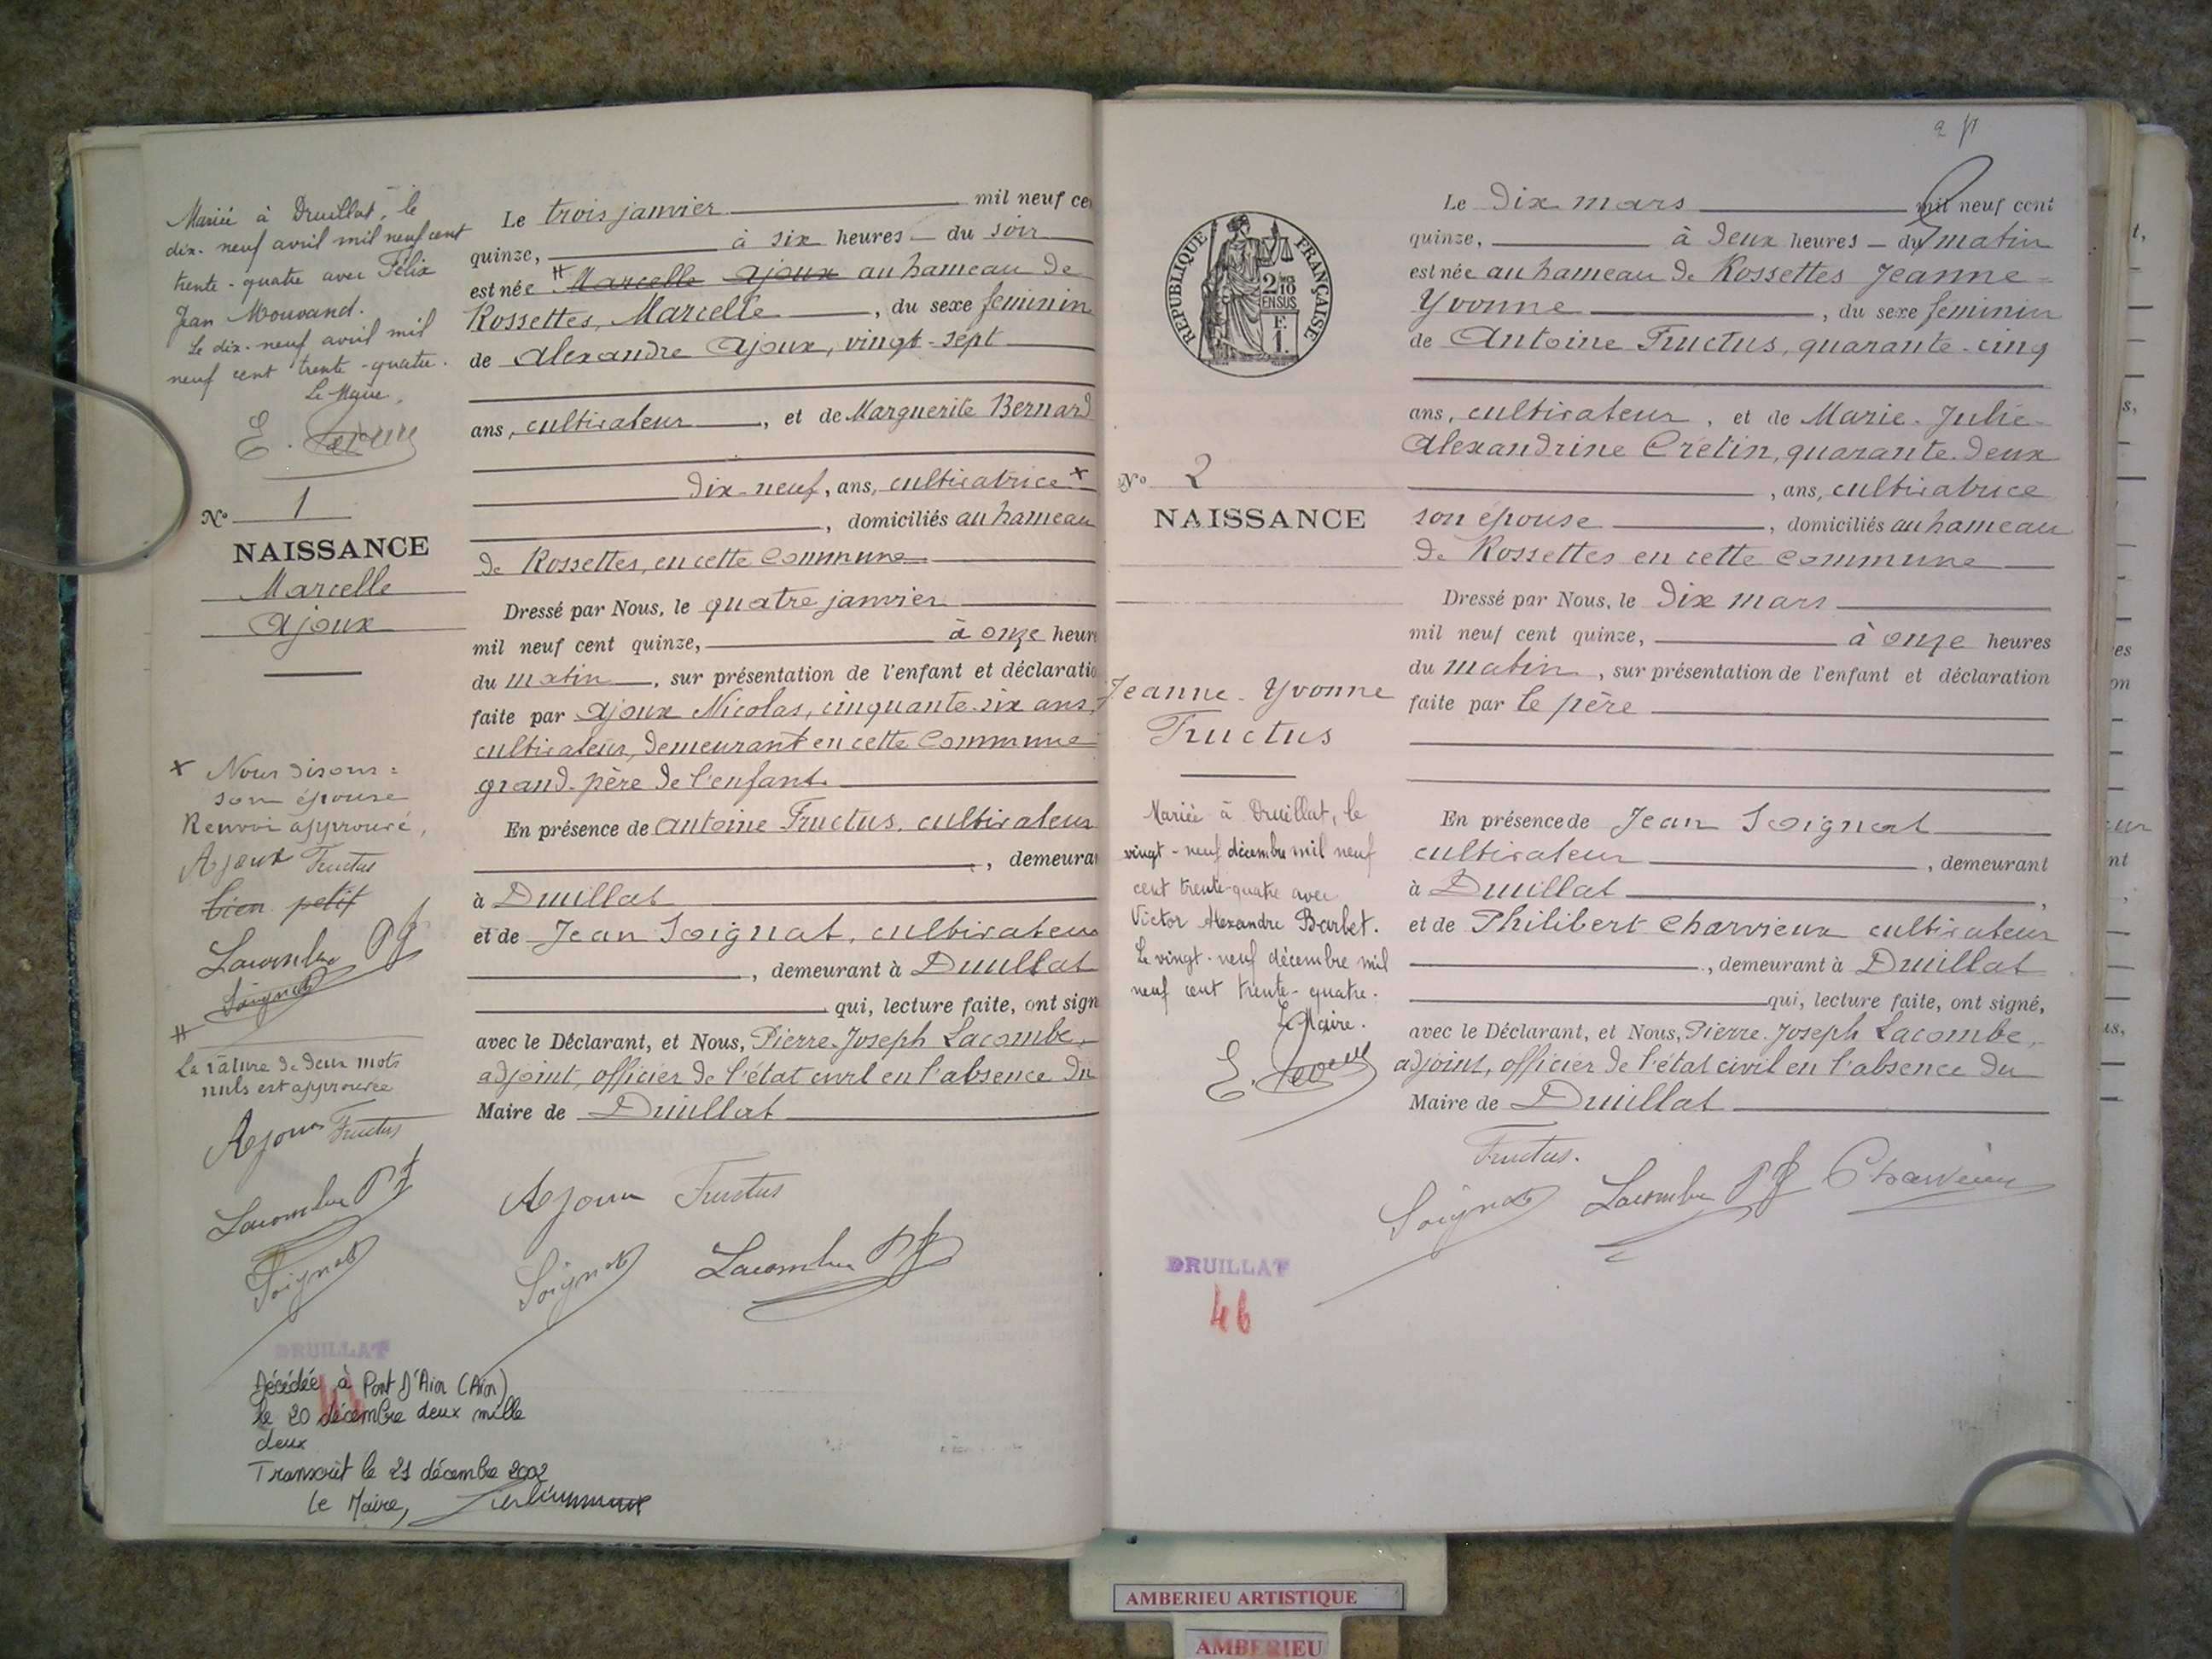 Mariée à Druillat, le
dix-neuf avril mil neuf cent
trente-quatre avec Félix
Jean Mouvand.
Le dix-neuf avril mil
neuf cent trente-quatre.
Le Maire,
N° 1
NAISSANCE
Marcelle
Ajoux
× Nous disons :
son épouse
Renvoi approuvé,
Ajoux Fructus
bien petit
Lacombe PJ
Soignat
#
La rature de deux mots
nuls est approuvée
Ajoux Fructus
Lacombe PJ
Soignat
DRUILLAT
Décédée à Pont D'Ain (Ain)
le 20 décembre deux mille
deux
Transcrit le 21 décembre 2002
Le Maire,
Le trois janvier mil neuf ce
quinze, à six heures - du soir
est née # Marcelle Ajoux au hameau de
Rossettes, Marcelle , du sexe feminin
de Alexandre Ajoux, vingt-sept
ans, cultivateur , et de Marguerite Bernard
dix-neuf, ans, cultivatrice ×
, domiciliés au hameau
de Rossettes, en cette Commune
Dressé par Nous, le quatre janvier
mil neuf cent quinze, à onze heure
du matin , sur présentation de l'enfant et déclaratio
faite par Ajoux Nicolas, cinquante-six ans,
cultivateur, demeurant en cette Commune
grand-père de l'enfant.
En présence de Antoine Fructus, cultivateur
, demeura
à Druillat
et de Jean Soignat, cultivateur
, demeurant à Druillat
qui, lecture faite, ont sign
avec le Déclarant, et Nous, Pierre-Joseph Lacombe,
adjoint, officier de l'état civil en l'absence du
Maire de Druillat
Ajoux Fructus
Soignat Lacombe PJ
2
RÉPUBLIQUE FRANÇAISE
2/10
EN SUS
F.
1.
N° 2
NAISSANCE
Jeanne-Yvonne
Fructus
Mariée à Druillat, le
vingt-neuf décembre mil neuf
cent trente-quatre avec
Victor Alexandre Barbet.
Le vingt-neuf décembre mil
neuf cent trente-quatre.
Le Maire.
DRUILLAT
46
Le Dix mars mil neuf cent
quinze, à Deux heures - du matin
est née au hameau de Rossettes Jeanne-
Yvonne , du sexe feminin
de Antoine Fructus, quarante-cinq
ans, cultivateur , et de Marie-Julie-
Alexandrine Crétin, quarante-deux
, ans, cultivatrice
son épouse , domiciliés au hameau
de Rossettes en cette commune
Dressé par Nous, le Dix mars
mil neuf cent quinze, à onze heures
du matin , sur présentation de l'enfant et déclaration
faite par le père
En présence de Jean Soignat
cultivateur , demeurant
à Druillat ,
et de Philibert Charvieux cultivateur
, demeurant à Druillat
qui, lecture faite, ont signé,
avec le Déclarant, et Nous, Pierre-Joseph Lacombe,
adjoint, officier de l'état civil en l'absence du
Maire de Druillat
Fructus.
Soignat Lacombe PJ Charvieux
AMBERIEU ARTISTIQUE
AMBERIEU